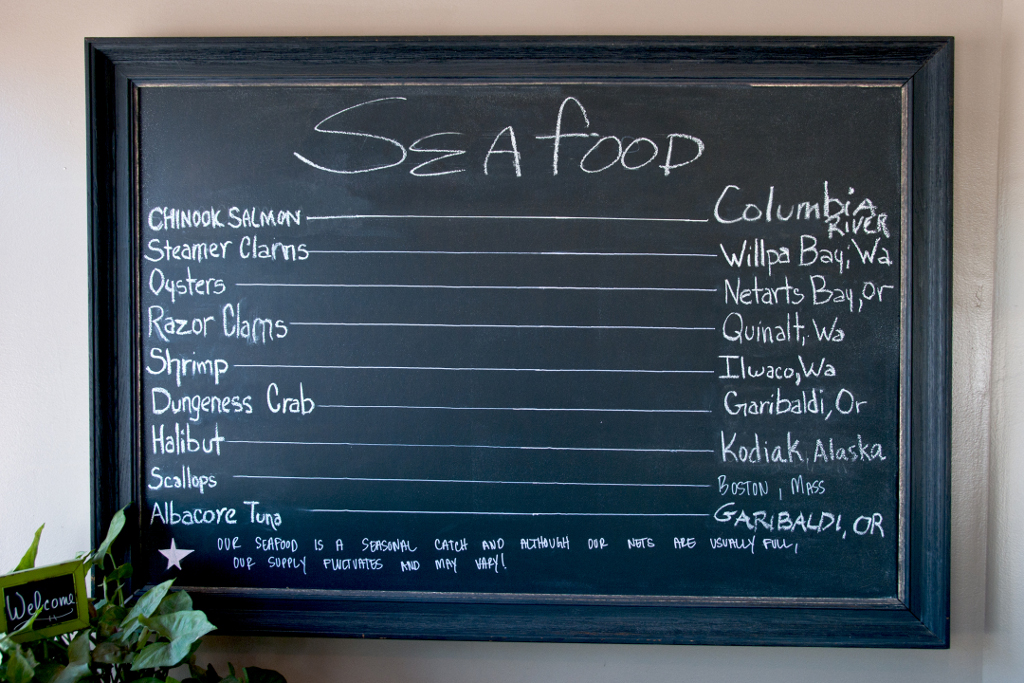 SEAfOOD
CHINOOK SALMON Columbia RIVER
Steamer Clams Willpa Bay, Wa
Oysters Netarts Bay, Or
Razor Clams Quinalt, Wa
Shrimp Ilwaco, Wa
Dungeness Crab Garibaldi, Or
Halibut Kodiak, Alaska
Scallops BOSTON, MASS
Albacore Tuna GARIBALDI, OR
OUR SEAFOOD IS A SEASONAL CATCH AND ALTHOUGH OUR NETS ARE USUALLY FULL,
OUR SUPPLY FLUCTUATES AND MAY VARY!
Welcome